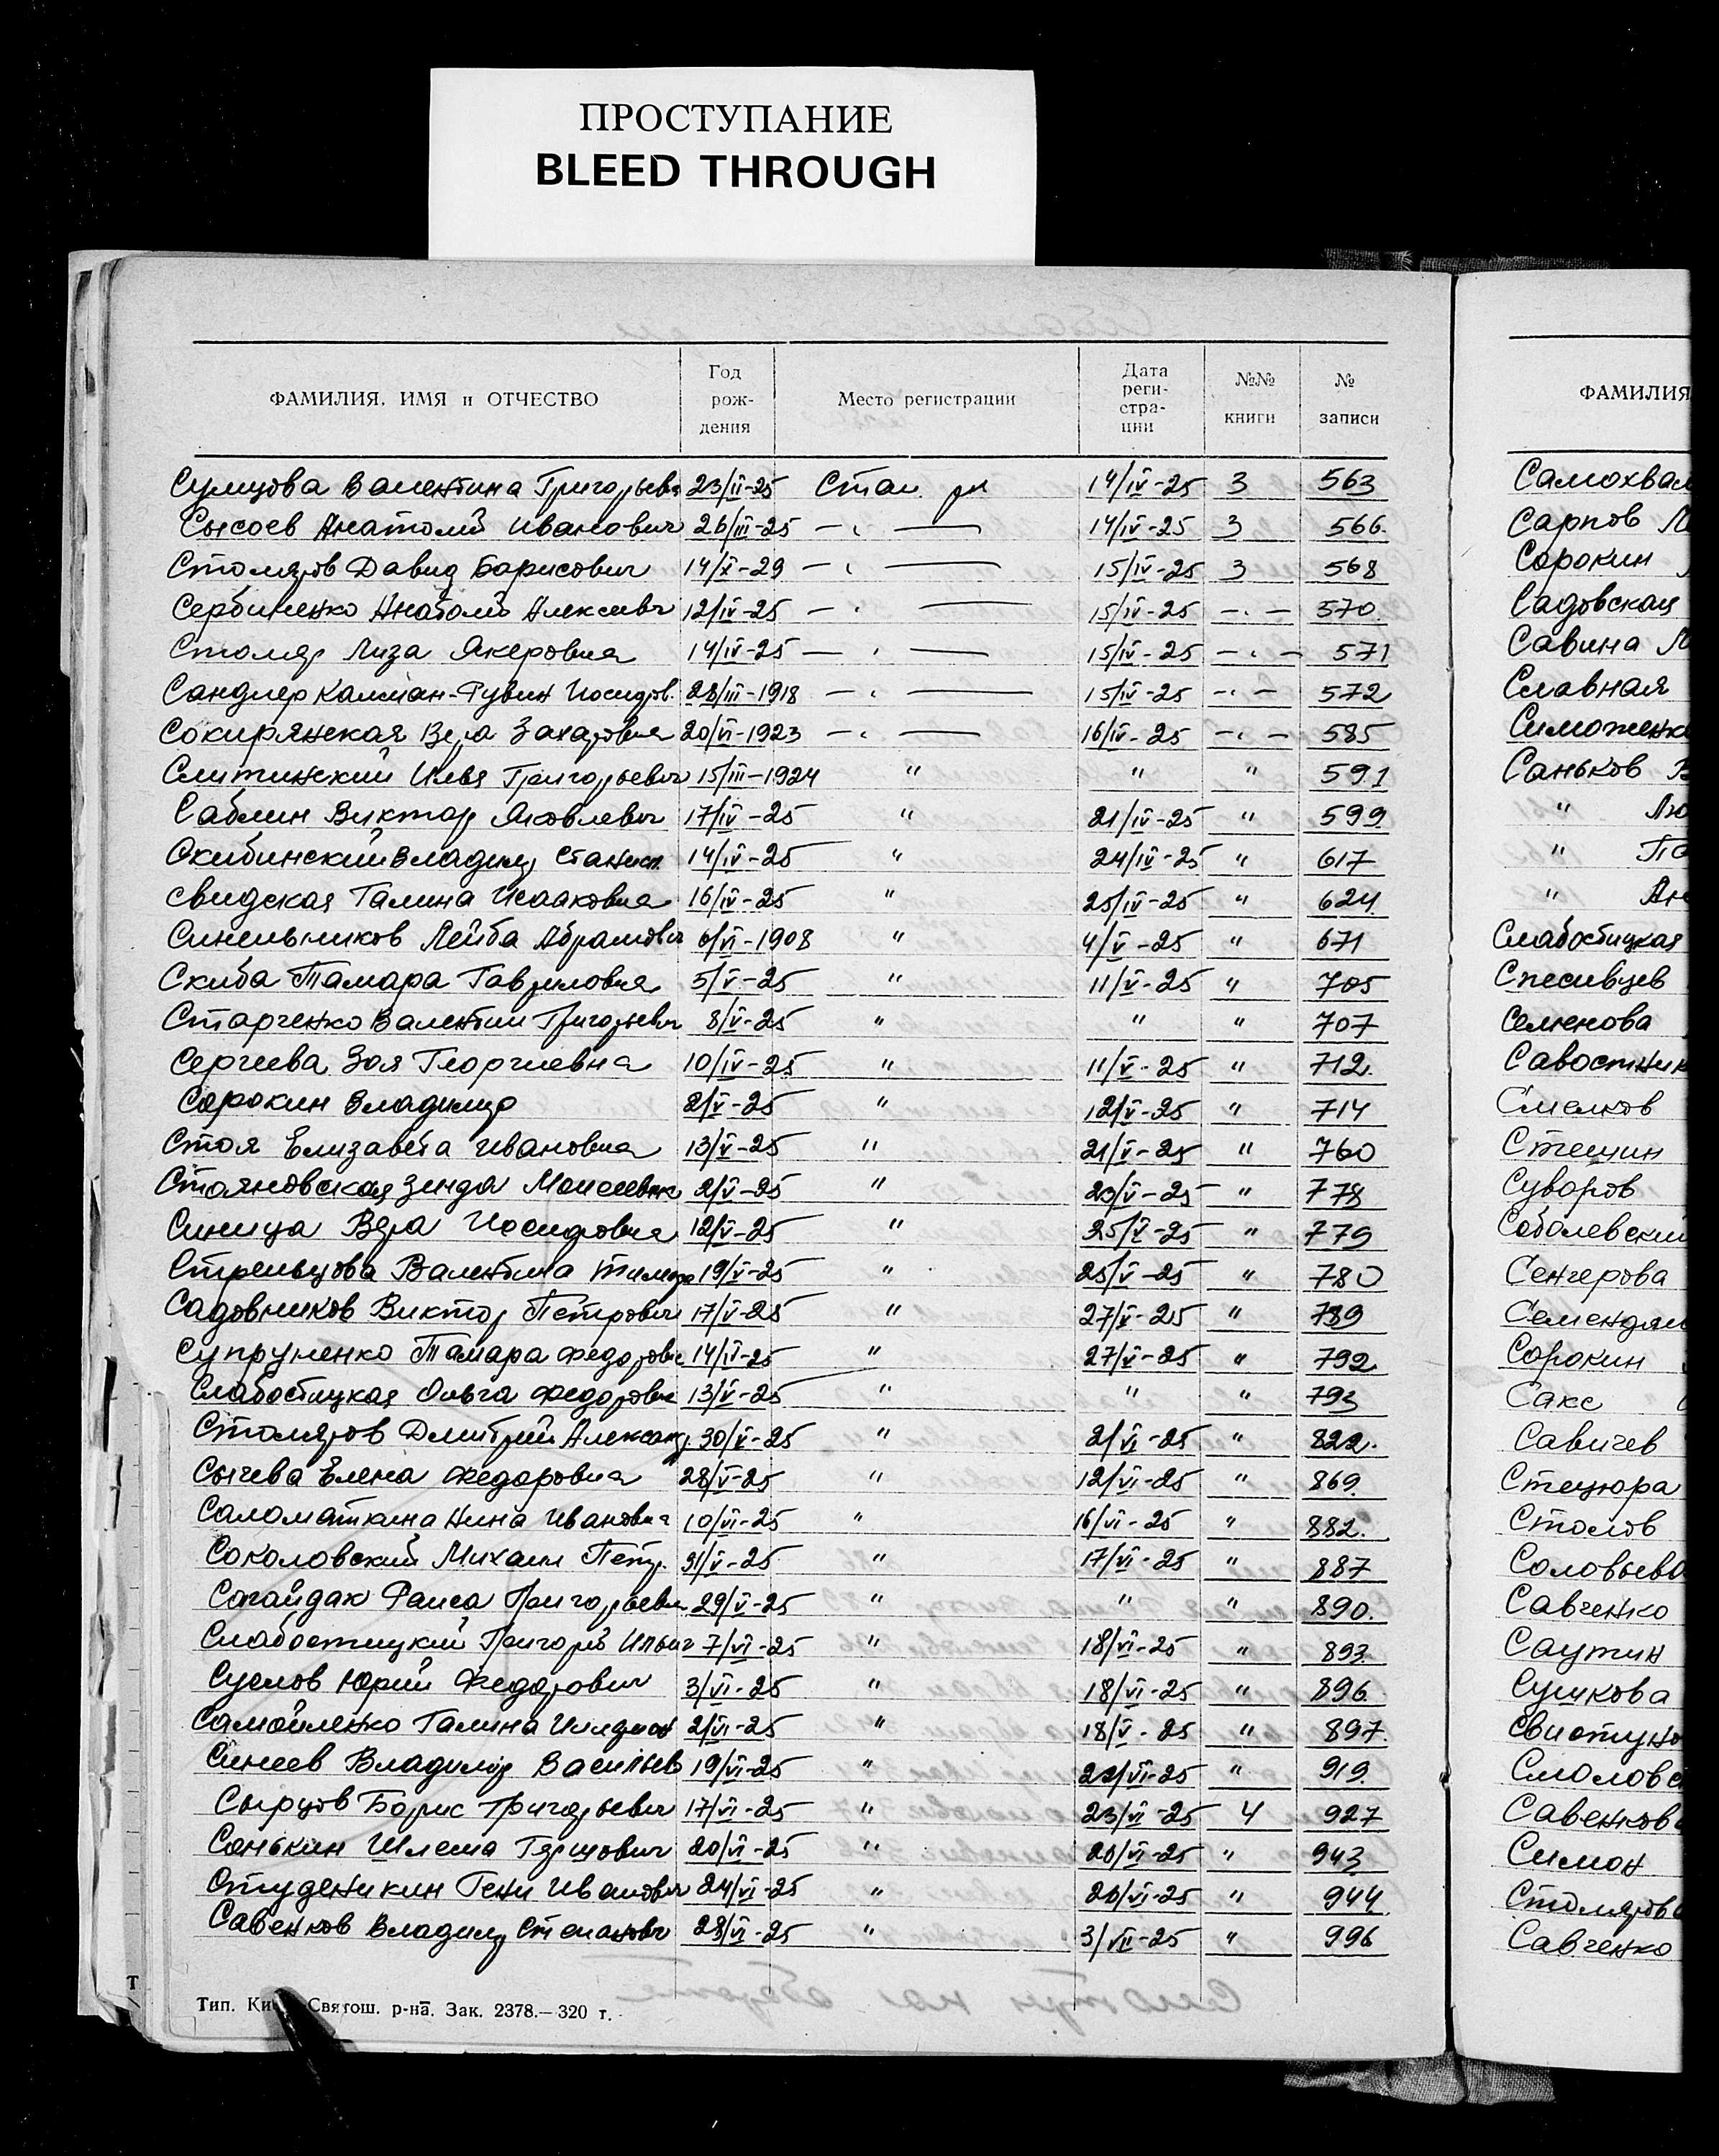 ПРОСТУПАНИЕ
BLEED THROUGH
ФАМИЛИЯ, ИМЯ и ОТЧЕСТВО Год рождения Место регистрации Дата регистрации №№ книги № записи
Сумцова Валентина Григорьевн 23/II-25 Стал. рн 14/IV-25 3 563
Сысоев Анатолий Иванович 26/III-25 — " — 14/IV-25 3 566.
Столяров Давид Борисович 14/X-29 — " — 15/IV-25 3 568
Сербиненко Анатолий Алексеевич 12/IV-25 — " — 15/IV-25 — " — 570.
Столяр Лиза Якеровна 14/IV-25 — " — 15/IV-25 — " — 571
Сандлер Калман-Рувин Иосифов. 28/III-1918 — " — 15/IV-25 — " — 572
Сокирянская Вера Захаровна 20/VI-1923 — " — 16/IV-25 — " — 585
Слитинский Илья Григорьевич 15/III-1924 " " " 591
Саблин Виктор Яковлевич 17/IV-25 " 21/IV-25 " 599.
Скибинский Владимир Станисл. 14/IV-25 " 24/IV-25 " 617
Свидская Галина Исааковна 16/IV-25 " 25/IV-25 " 624.
Синельников Лейба Абрамович 6/VI-1908 " 4/V-25 " 671
Скиба Тамара Гавриловна 5/V-25 " 11/V-25 " 705
Старченко Валентин Григорьевич 8/V-25 " " " 707
Сергеева Зоя Георгиевна 10/IV-25 " 11/V-25 " 712.
Сорокин Владимир 2/V-25 " 12/V-25 " 714
Стоя Елизавета Ивановна 13/V-25 " 21/V-25 " 760
Стояновская Зинда Моисеевна 2/V-25 " 23/V-25 " 778
Синица Вера Иосифовна 12/V-25 " 25/V-25 " 779
Стрельцова Валентина Тимоф 19/V-25 " 25/V-25 " 780
Садовников Виктор Петрович 17/V-25 " 27/V-25 " 789
Супруненко Тамара Федоровн 14/IV-25 " 27/V-25 " 792
Слабостицкая Ольга Федоровн 13/V-25 " " " 793
Столяров Дмитрий Александ. 30/V-25 " 2/VI-25 " 822.
Сычева Елена Федоровна 28/V-25 " 12/VI-25 " 869.
Саломаткина Нина Ивановна 10/VI-25 " 16/VI-25 " 882.
Соколовский Михаил Петр. 31/V-25 " 17/VI-25 " 887
Согайдак Раиса Григорьевн 29/V-25 " " " 890.
Слабостицкий Григорий Ильич 7/VI-25 " 18/VI-25 " 893.
Суслов Юрий Федорович 3/VI-25 " 18/VI-25 " 896.
Самойленко Галина 2/VI-25 " 18/V-25 " 897.
Синеев Владимир Васильев 19/VI-25 " 22/VI-25 " 919.
Сырцов Борис Григорьевич 17/VI-25 " 23/VI-25 4 927
Сонькин Шлема Герцович 20/VI-25 " 26/VI-25 " 943
Студеникин Гени Иванович 24/VI-25 " 26/VI-25 " 944
Савенков Владимир Степанович 28/VI-25 " 3/VII-25 " 996
Тип. Ки Святош. р-на. Зак. 2378.—320 т.
Т
ФАМИЛИЯ
Самохвал
Сарпов
Сорокин
Садовская
Савина М
Славная
Симоненко
Саньков В
" Лю
" Па
" Ан
Слабостицкая
Спесивцев
Семенова
Савостник
Смелков
Стецин
Суворов
Соболевский
Сенчерова
Семендял
Сорокин
Сакс
Савичев
Стецюра
Столов
Соловьева
Савченко
Саутин
Сушкова
Свистуно
Смоловс
Савенкова
Симон
Столярова
Савченко